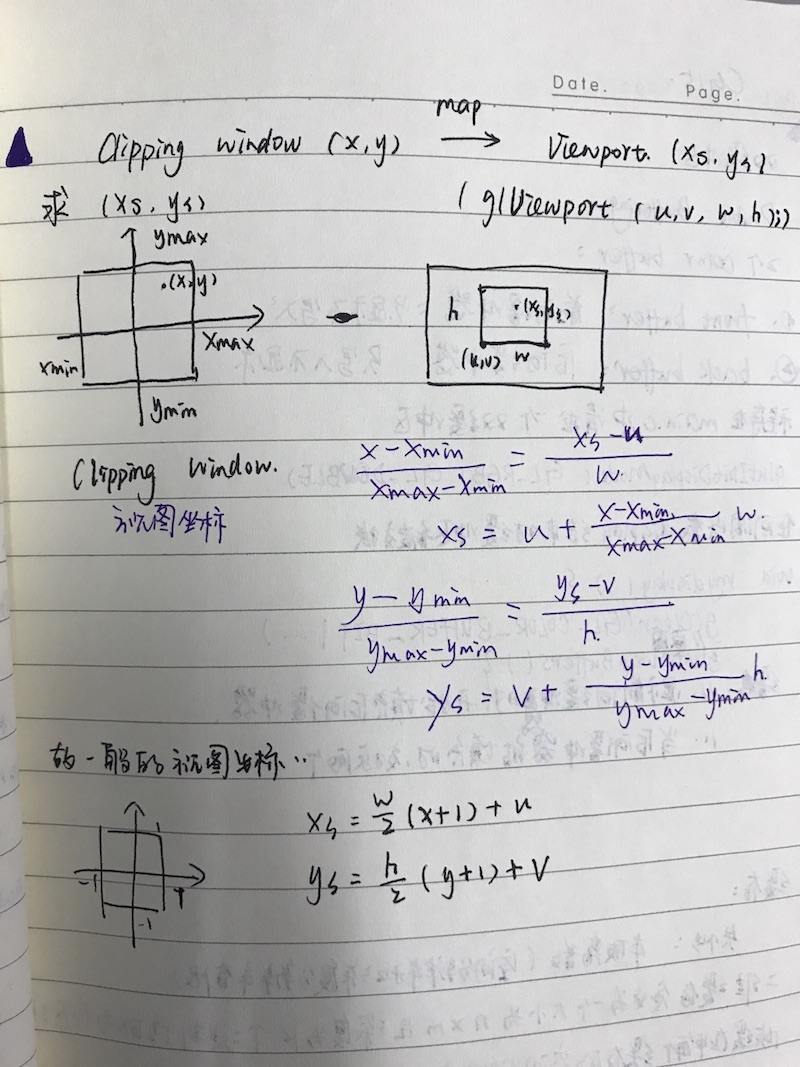 Date. Page.
Clipping window (x,y) map → Viewport. (xs, ys)
求 (xs, ys) ( glViewport (u, v, w, h);)
ymax
(x,y)
xmax
xmin
ymin
h (xs, ys)
(u,v) w
Clipping window.
视图坐标
(x - xmin)/(xmax - xmin) = (xs - u)/w
xs = u + (x - xmin)/(xmax - xmin) w.
(y - ymin)/(ymax - ymin) = (ys - v)/h.
ys = v + (y - ymin)/(ymax - ymin) h.
一般的视图坐标..
1
-1 1
-1
xs = w/2 (x+1) + u
ys = h/2 (y+1) + v